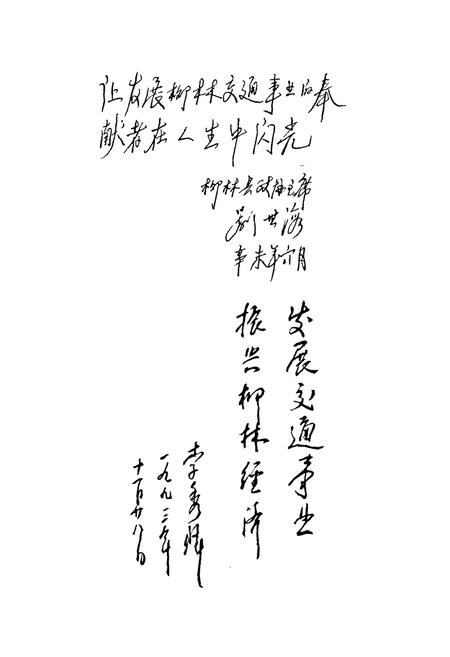 让发展柳林交通事业的奉
献者在人生中闪光
柳林县政协主席
刘世海
辛未年六月
发展交通事业
振兴柳林经济
李秀峰
一九九三年
十一月廿八日